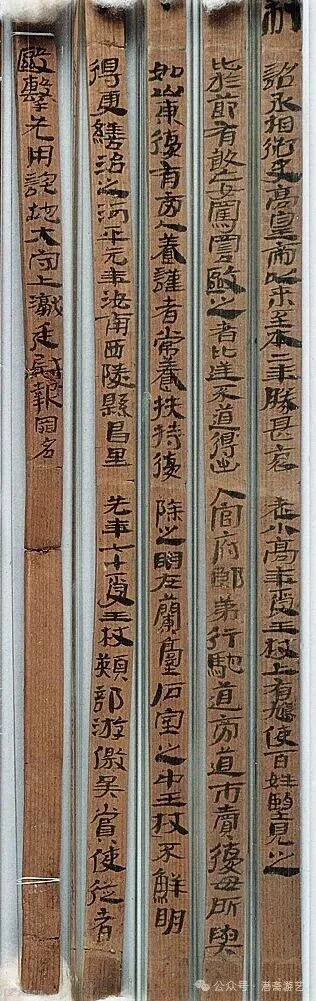 制
詔丞相御史高皇帝以來至本二年勝甚哀老小高年受王杖上有鳩使百姓望見之
比於節有敢妄罵詈毆之者比逆不道得出入官府郎第行馳道旁道市賣復毋所與
如山東復有旁人養謹者常養扶持復除之明在蘭臺石室之中王杖不鮮明
得更繕治之河平元年汝南西陵縣昌里先年七十受王杖熲部游徼吳賞使從者
毆擊先用詑地大守上讞廷尉報罪名
公众号·港斋游艺